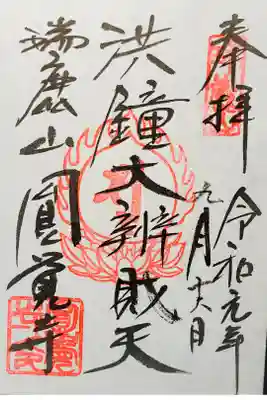 奉拝
令和元年
九月十六日
洪鐘大辨財天
瑞鹿山圓覚寺